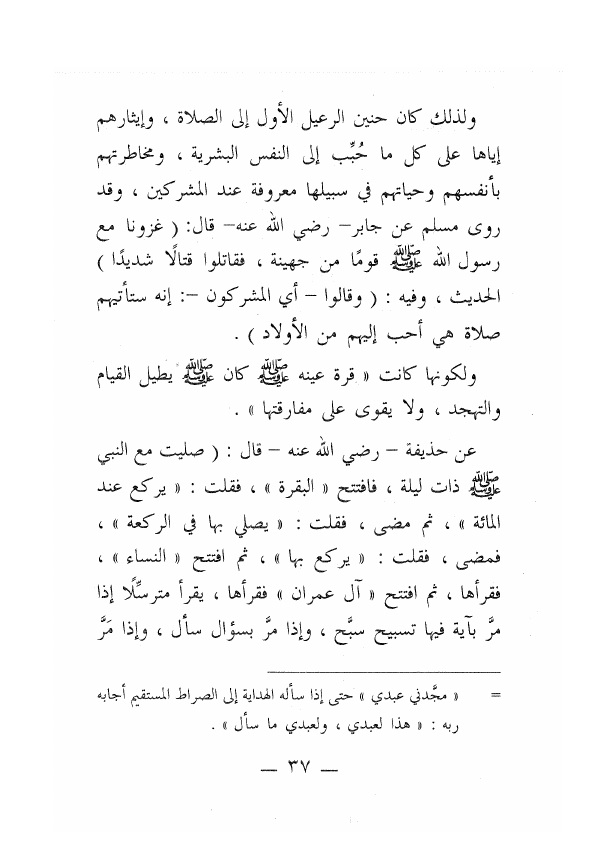 ولذلك كان حنين الرعيل الأول إلى الصلاة ، وإيثارهم
إياها على كل ما حُبِّب إلى النفس البشرية ، ومخاطرتهم
بأنفسهم وحياتهم في سبيلها معروفة عند المشركين ، وقد
روى مسلم عن جابر– رضي الله عنه– قال: ( غزونا مع
رسول الله ﷺ قومًا من جهينة ، فقاتلوا قتالًا شديدًا )
الحديث ، وفيه : ( وقالوا – أي المشركون –: إنه ستأتيهم
صلاة هي أحب إليهم من الأولاد ) .
ولكونها كانت « قرة عينه ﷺ كان ﷺ يطيل القيام
والتهجد ، ولا يقوى على مفارقتها » .
عن حذيفة – رضي الله عنه – قال : ( صليت مع النبي
ﷺ ذات ليلة ، فافتتح « البقرة » ، فقلت : « يركع عند
المائة » ، ثم مضى ، فقلت : « يصلي بها في الركعة » ،
فمضى ، فقلت : « يركع بها » ، ثم افتتح « النساء » ،
فقرأها ، ثم افتتح « آل عمران » فقرأها ، يقرأ مترسِّلًا إذا
مرَّ بآية فيها تسبيح سبَّح ، وإذا مرَّ بسؤال سأل ، وإذا مَرَّ
= « مجَّدني عبدي » حتى إذا سأله الهداية إلى الصراط المستقيم أجابه
ربه : « هذا لعبدي ، ولعبدي ما سأل » .
— ٣٧ —